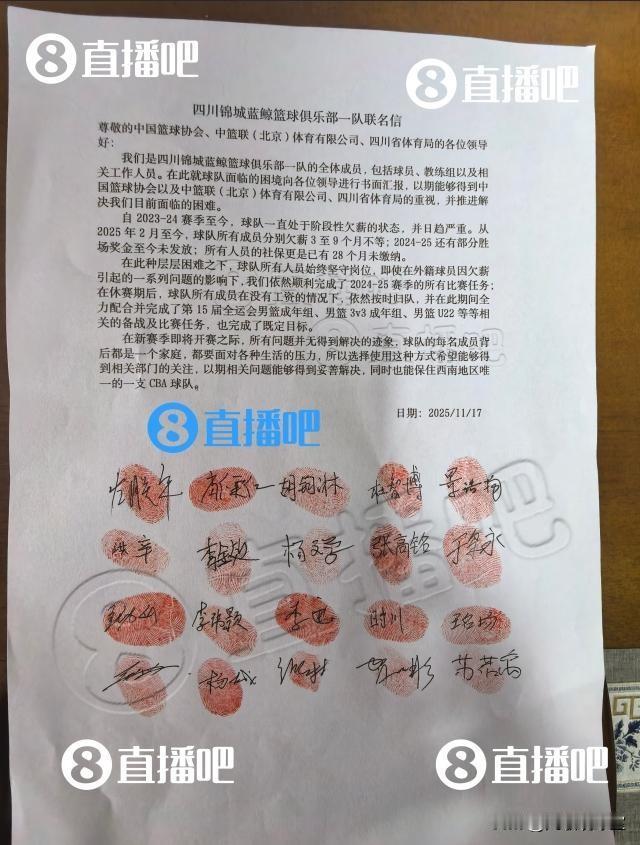 8直播吧
8直播吧
四川锦城蓝鲸篮球俱乐部一队联名信
尊敬的中国篮球协会、中篮联（北京）体育有限公司、四川省体育局的各位领导
好：
我们是四川锦城蓝鲸篮球俱乐部一队的全体成员，包括球员、教练组以及相
关工作人员。在此就球队面临的困境向各位领导进行书面汇报，以期能够得到中
国篮球协会以及中篮联（北京）体育有限公司、四川省体育局的重视，并推进解
决我们目前面临的困难。
自 2023-24 赛季至今，球队一直处于阶段性欠薪的状态，并日趋严重。从
2025 年 2 月至今，球队所有成员分别欠薪 3 至 9 个月不等；2024-25 还有部分胜
场奖金至今未发放；所有人员的社保更是已有 28 个月未缴纳。
在此种层层困难之下，球队所有人员始终坚守岗位，即使在外籍球员因欠薪
引起的一系列问题的影响下，我们依然顺利完成了 2024-25 赛季的所有比赛任务；
在休赛期后，球队所有成员在没有工资的情况下，依然按时归队，并在此期间全
力配合并完成了第 15 届全运会男篮成年组、男篮 3v3 成年组、男篮 U22 等等相
关的备战及比赛任务，也完成了既定目标。
在新赛季即将开赛之际，所有问题并无得到解决的迹象，球队的每名成员背
后都是一个家庭，都要面对各种生活的压力，所以选择使用这种方式希望能够得
到相关部门的关注，以期相关问题能够得到妥善解决，同时也能保住西南地区唯
一的一支 CBA 球队。
日期：2025/11/17
8直播吧
杜智博
杨文学 张高铭
李祎颢 李迅 时川
8直播吧
8直播吧
8直播吧